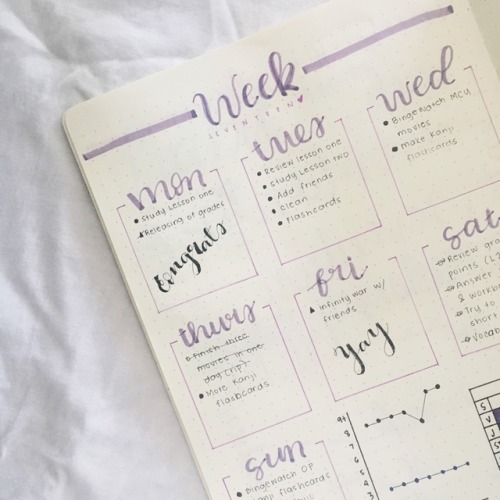 Week
SEVENTEEN
mon
Study Lesson one
Releasing of grades
Congrats
tues
Review lesson one
Study Lesson two
Add friends
clean
flashcards
wed
BingeWatch MCU
movies
make Kanji
flashcards
thurs
Finish three
movies in one
day (rip)
More Kanji
flashcards
fri
infinity war w/
friends
yay
sat
Review
points (L2
Answer
& workb
Try to
short
Vocab
sun
BingeWatch OP
flashcards
9+
8
7
6
5
4
S
V
J